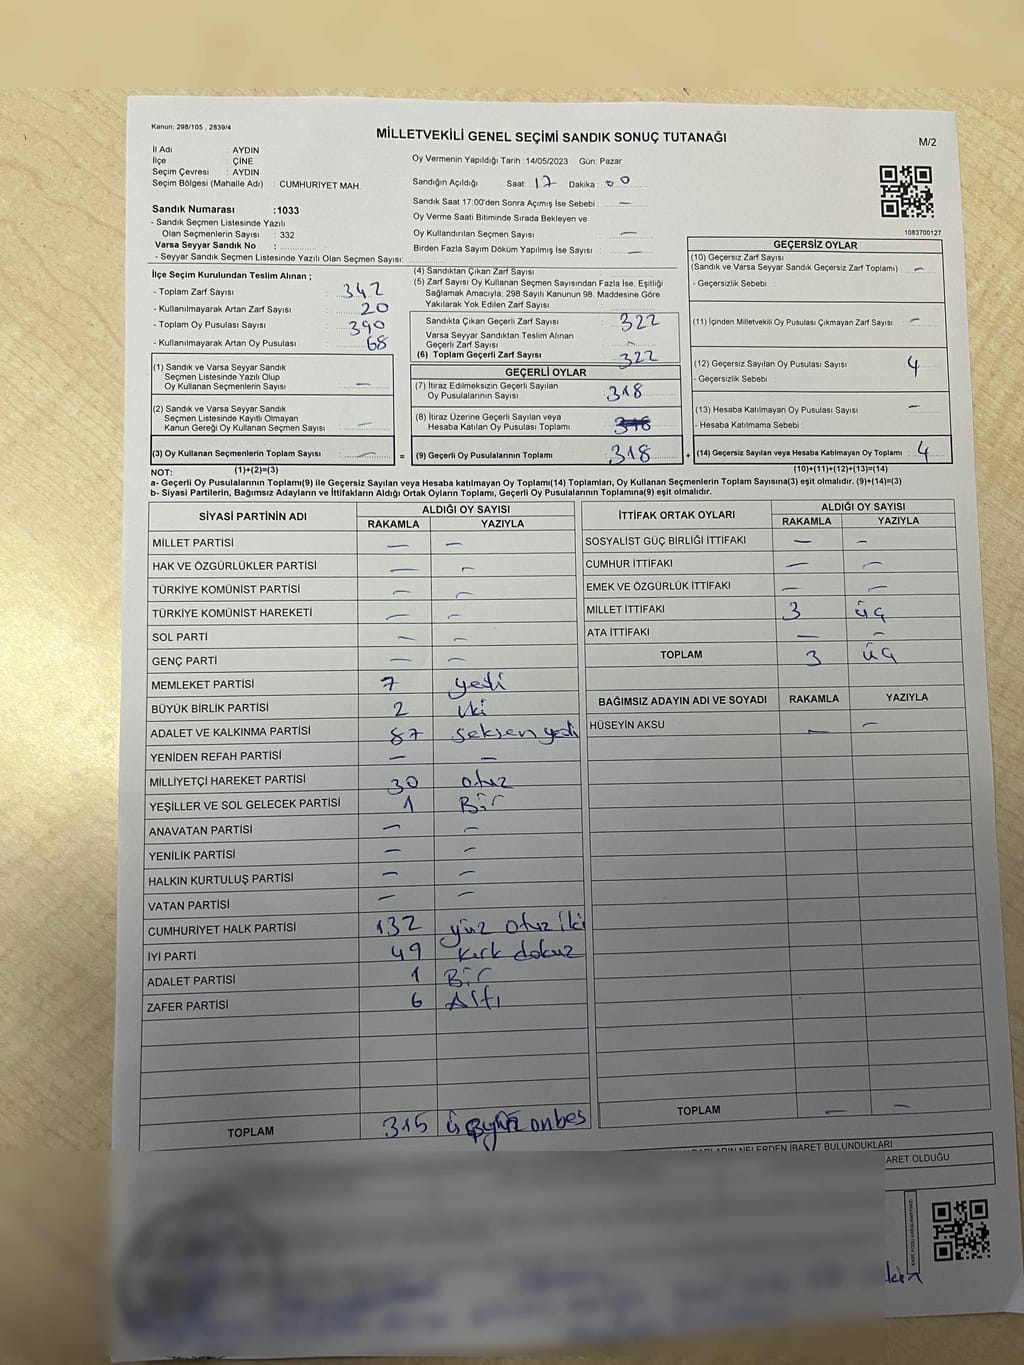 Kanun; 298/105 , 2839/4
MİLLETVEKİLİ GENEL SEÇİMİ SANDIK SONUÇ TUTANAĞI
M/2
İl Adı : AYDIN
İlçe : ÇİNE
Seçim Çevresi : AYDIN
Seçim Bölgesi (Mahalle Adı) : CUMHURİYET MAH.
Oy Vermenin Yapıldığı Tarih :14/05/2023 Gün: Pazar
Sandığın Açıldığı Saat: 17 Dakika: 00
Sandık Saat 17:00'den Sonra Açımış İse Sebebi : —
Oy Verme Saati Bitiminde Sırada Bekleyen ve
Oy Kullandırılan Seçmen Sayısı : —
Birden Fazla Sayım Döküm Yapılmış İse Sayısı : —
Sandık Numarası :1033
- Sandık Seçmen Listesinde Yazılı
Olan Seçmenlerin Sayısı : 332
Varsa Seyyar Sandık No :
- Seyyar Sandık Seçmen Listesinde Yazılı Olan Seçmen Sayısı:
1083700127
İlçe Seçim Kurulundan Teslim Alınan ;
- Toplam Zarf Sayısı : 342
- Kullanılmayarak Artan Zarf Sayısı : 20
- Toplam Oy Pusulası Sayısı : 390
- Kullanılmayarak Artan Oy Pusulası : 68
(1) Sandık ve Varsa Seyyar Sandık
Seçmen Listesinde Yazılı Olup
Oy Kullanan Seçmenlerin Sayısı : —
(2) Sandık ve Varsa Seyyar Sandık
Seçmen Listesinde Kayıtlı Olmayan
Kanun Gereği Oy Kullanan Seçmen Sayısı : —
(3) Oy Kullanan Seçmenlerin Toplam Sayısı : —
(1)+(2)=(3)
(4) Sandıktan Çıkan Zarf Sayısı :
(5) Zarf Sayısı Oy Kullanan Seçmen Sayısından Fazla İse, Eşitliği
Sağlamak Amacıyla; 298 Sayılı Kanunun 98. Maddesine Göre
Yakılarak Yok Edilen Zarf Sayısı :
Sandıkta Çıkan Geçerli Zarf Sayısı : 322
Varsa Seyyar Sandıktan Teslim Alınan
Geçerli Zarf Sayısı : —
(6) Toplam Geçerli Zarf Sayısı : 322
GEÇERLİ OYLAR
(7) İtiraz Edilmeksizin Geçerli Sayılan
Oy Pusulalarının Sayısı : 318
(8) İtiraz Üzerine Geçerli Sayılan veya
Hesaba Katılan Oy Pusulası Toplamı :
= (9) Geçerli Oy Pusulalarının Toplamı : 318
GEÇERSİZ OYLAR
(10) Geçersiz Zarf Sayısı
(Sandık ve Varsa Seyyar Sandık Geçersiz Zarf Toplamı) : —
- Geçersizlik Sebebi :
(11) İçinden Milletvekili Oy Pusulası Çıkmayan Zarf Sayısı : —
(12) Geçersiz Sayılan Oy Pusulası Sayısı : 4
- Geçersizlik Sebebi :
(13) Hesaba Katılmayan Oy Pusulası Sayısı : —
- Hesaba Katılmama Sebebi :
+ (14) Geçersiz Sayılan veya Hesaba Katılmayan Oy Toplamı : 4
(10)+(11)+(12)+(13)=(14)
NOT:
a- Geçerli Oy Pusulalarının Toplamı(9) ile Geçersiz Sayılan veya Hesaba katılmayan Oy Toplamı(14) Toplamları, Oy Kullanan Seçmenlerin Toplam Sayısına(3) eşit olmalıdır. (9)+(14)=(3)
b- Siyasi Partilerin, Bağımsız Adayların ve İttifakların Aldığı Ortak Oyların Toplamı, Geçerli Oy Pusulalarının Toplamına(9) eşit olmalıdır.
SİYASİ PARTİNİN ADI
ALDIĞI OY SAYISI
RAKAMLA YAZIYLA
MİLLET PARTİSİ — —
HAK VE ÖZGÜRLÜKLER PARTİSİ — —
TÜRKİYE KOMÜNİST PARTİSİ — —
TÜRKİYE KOMÜNİST HAREKETİ — —
SOL PARTİ — —
GENÇ PARTİ — —
MEMLEKET PARTİSİ 7 yedi
BÜYÜK BİRLİK PARTİSİ 2 iki
ADALET VE KALKINMA PARTİSİ 87 seksen yedi
YENİDEN REFAH PARTİSİ — —
MİLLİYETÇİ HAREKET PARTİSİ 30 otuz
YEŞİLLER VE SOL GELECEK PARTİSİ 1 Bir
ANAVATAN PARTİSİ — —
YENİLİK PARTİSİ — —
HALKIN KURTULUŞ PARTİSİ — —
VATAN PARTİSİ — —
CUMHURİYET HALK PARTİSİ 132 yüz otuz iki
İYİ PARTİ 49 kırk dokuz
ADALET PARTİSİ 1 Bir
ZAFER PARTİSİ 6 Altı
TOPLAM 315 üçyüz onbeş
İTTİFAK ORTAK OYLARI
ALDIĞI OY SAYISI
RAKAMLA YAZIYLA
SOSYALİST GÜÇ BİRLİĞİ İTTİFAKI — —
CUMHUR İTTİFAKI — —
EMEK VE ÖZGÜRLÜK İTTİFAKI — —
MİLLET İTTİFAKI 3 üç
ATA İTTİFAKI — —
TOPLAM 3 üç
BAĞIMSIZ ADAYIN ADI VE SOYADI RAKAMLA YAZIYLA
HÜSEYİN AKSU — —
TOPLAM — —
NELERDEN İBARET BULUNDUKLARI
ARET OLDUĞU